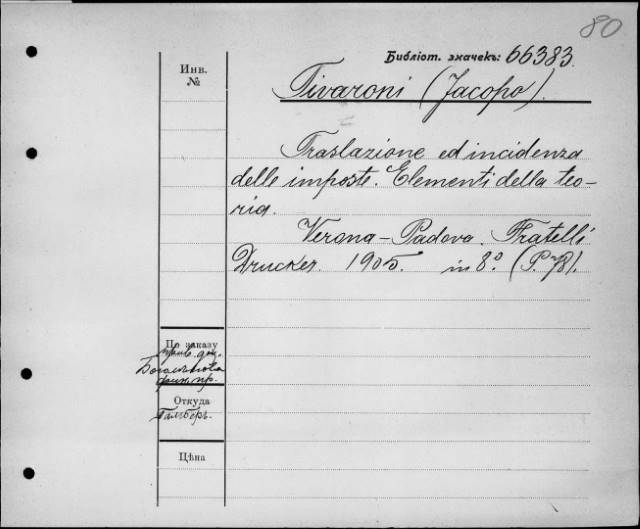 80
Библіот. значекъ: 66383.
Инв.
№
Tivaroni (Jacopo).
Traslazione ed incidenza
delle imposte. Elementi della teo-
ria.
Verona-Padova. Fratelli
Drucker. 1905. in 8º. (P. 78).
По заказу
прив. доц.
фин. пр.
Откуда
Гамберъ.
Цѣна